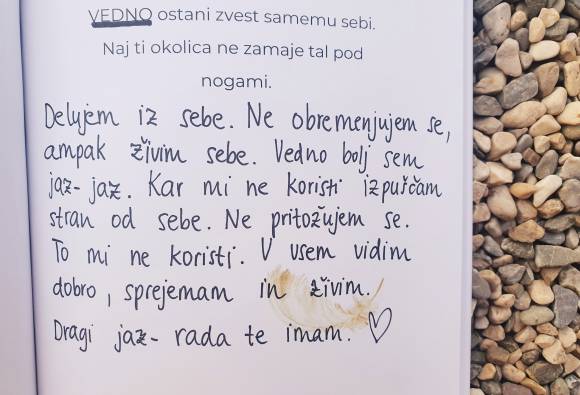 VEDNO ostani zvest samemu sebi.
Naj ti okolica ne zamaje tal pod
nogami.
Delujem iz sebe. Ne obremenjujem se,
ampak živim sebe. Vedno bolj sem
jaz-jaz. Kar mi ne koristi izpuščam
stran od sebe. Ne pritožujem se.
To mi ne koristi. V vsem vidim
dobro, sprejemam in živim.
Dragi jaz- rada te imam. ♡